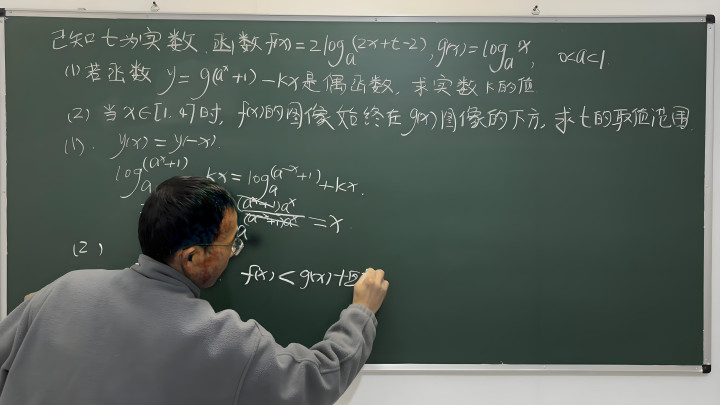 已知t为实数,函数f(x)=2log_a(2x+t-2),g(x)=log_a x, 0<a<1
(1)若函数 y=g(a^x+1)-kx是偶函数,求实数k的值
(2)当x∈[1,4]时,f(x)的图像始终在g(x)图像的下方,求t的取值范围
(1). y(x)=y(-x)
log_a(a^x+1) kx=log_a(a^-x+1)+kx.
(a^x+1)a^x/(a^-x+1)a^x=x
(2)
f(x)<g(x)恒